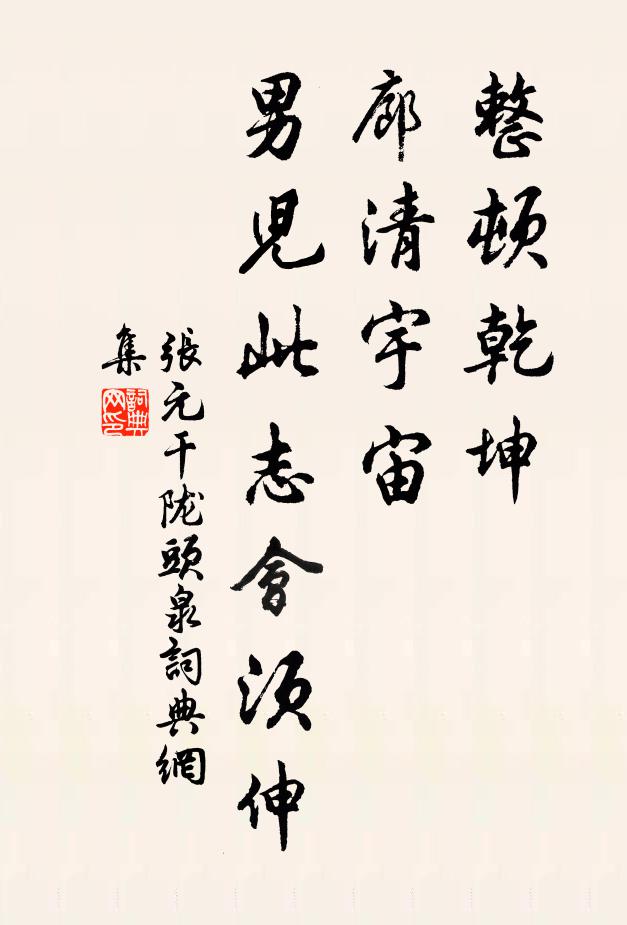 整頓乾坤
廓清宇宙
男兒此志會須伸
張元干陇頭泉詞典網
集
詞典
网印